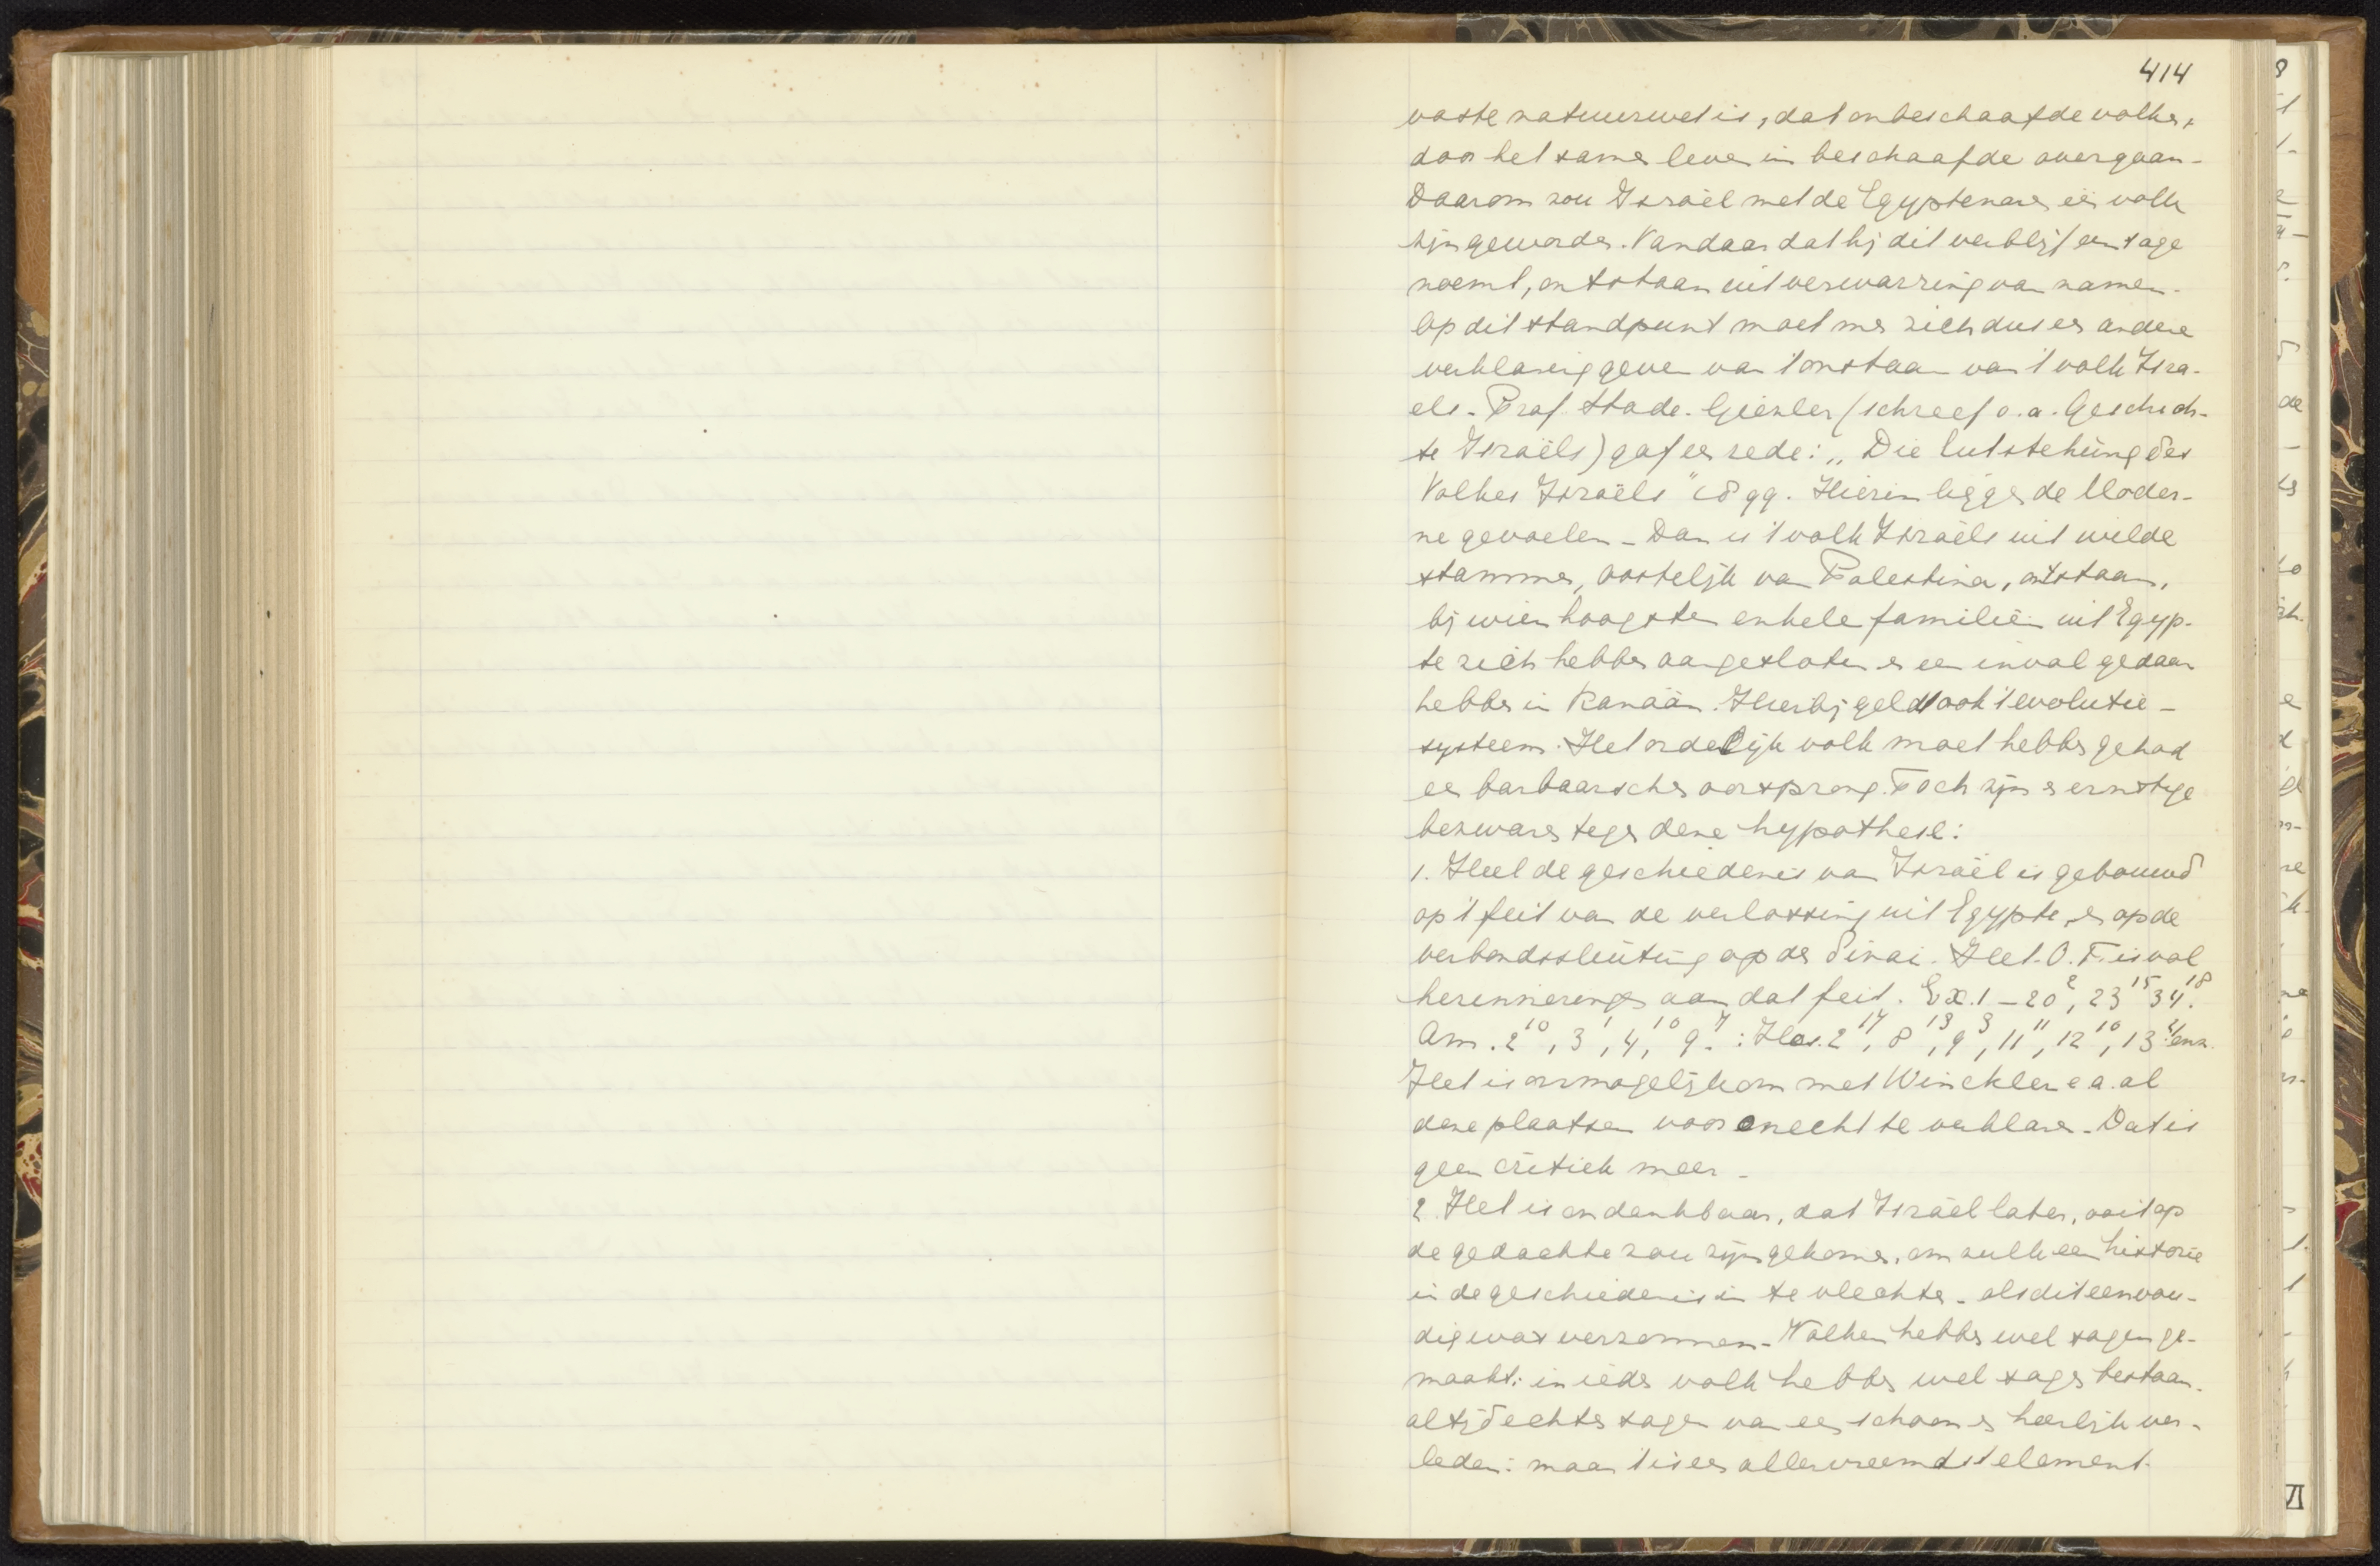 414
vaste natuurwet is, dat onbeschaafde volken
door het samen leven in beschaafde overgaan.
Daarom zou Israël met de Egyptenaren één volk
zijn geworden. Vandaar dat hij dit verblijf een sage
noemt, ontstaan uit verwarring van namen.
Op dit standpunt moet men zich dus een andere
verklaring geven van 't onstaan van 't volk Isra-
els. Prof. Stade. (schreef o.a. Geschich-
te Israëls) gaf een rede: „Die Entstehung des
Volkes Israëls" gg. Hierin liggen de Moder-
ne gevoelen. Dan is 't volk Israëls uit wilde
stammen, oostelijk van Palestina, ontstaan,
bij wien hoogsten enkele familiën uit Egyp-
te zich hebben aangesloten en een inval gedaan
hebben in Kanaän. Hierbij geldt ook 't evolutie-
systeem. Het ordelijk volk moet hebben gehad
een barbaarschen oorsprong. Toch zijn er ernstige
bezwaren tegen deze hypothese:
1. Heel de geschiedenis van Israël is gebouwd
op 't feit van de verlossing uit Egypte, en op de
verbondssluiting op den Sinai. Het O.T. is vol
herinneringen aan dat feit. Ex. 1-20², 23¹⁵ 34¹⁸.
Am. 2¹⁰, 3¹, 4¹⁰, 9⁷: Hos. 2¹⁷, 8¹³, 9³, 11¹¹, 12¹⁰, 13⁴ enz.
Het is onmogelijk om met Winckler e.a. al
deze plaatsen voor onecht te verklaren. Dat is
geen critiek meer.
2. Het is ondenkbaar, dat Israël later, ooit op
de gedachte zou zijn gekomen, om zulk een historie
in de geschiedenis in te vlechten, als dit eenvou-
dig was verzonnen. Volken hebben wel sagen ge-
maakt: in ieder volk hebben wel sagen bestaan.
altijd echter sagen van een schoon en heerlijk ver-
leden: maar 't is een allervreemdst element.
VI